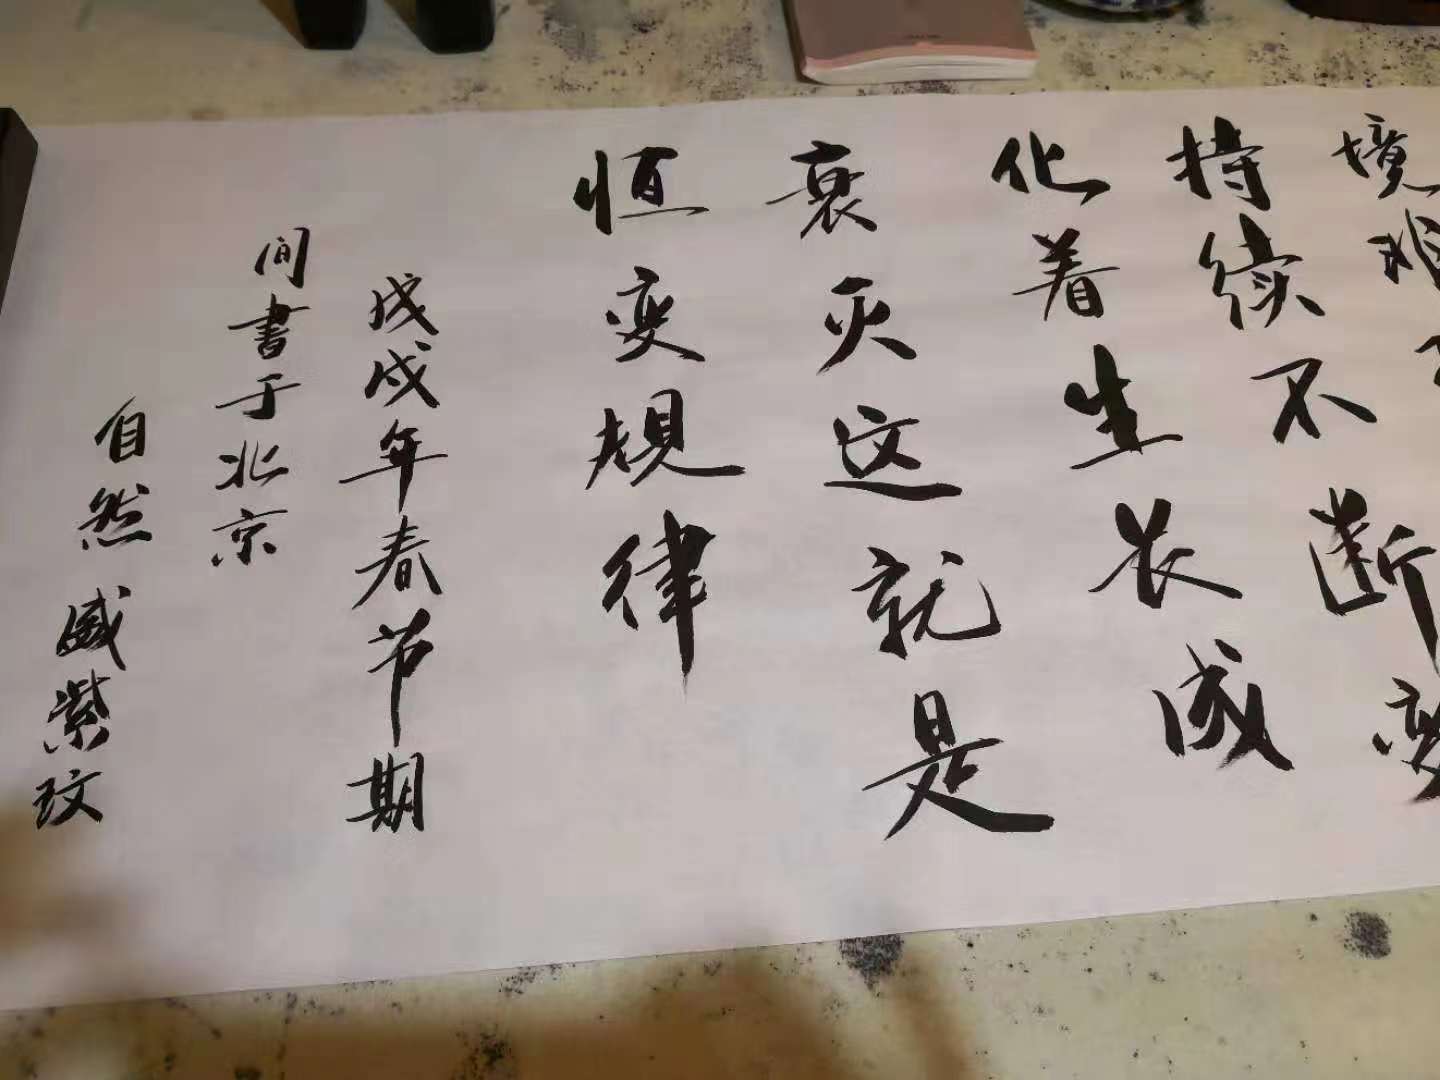 境
持续不断变
化着生长成
衰灭这就是
恒变规律
戊戌年春节期
间書于北京
自然 紫玟